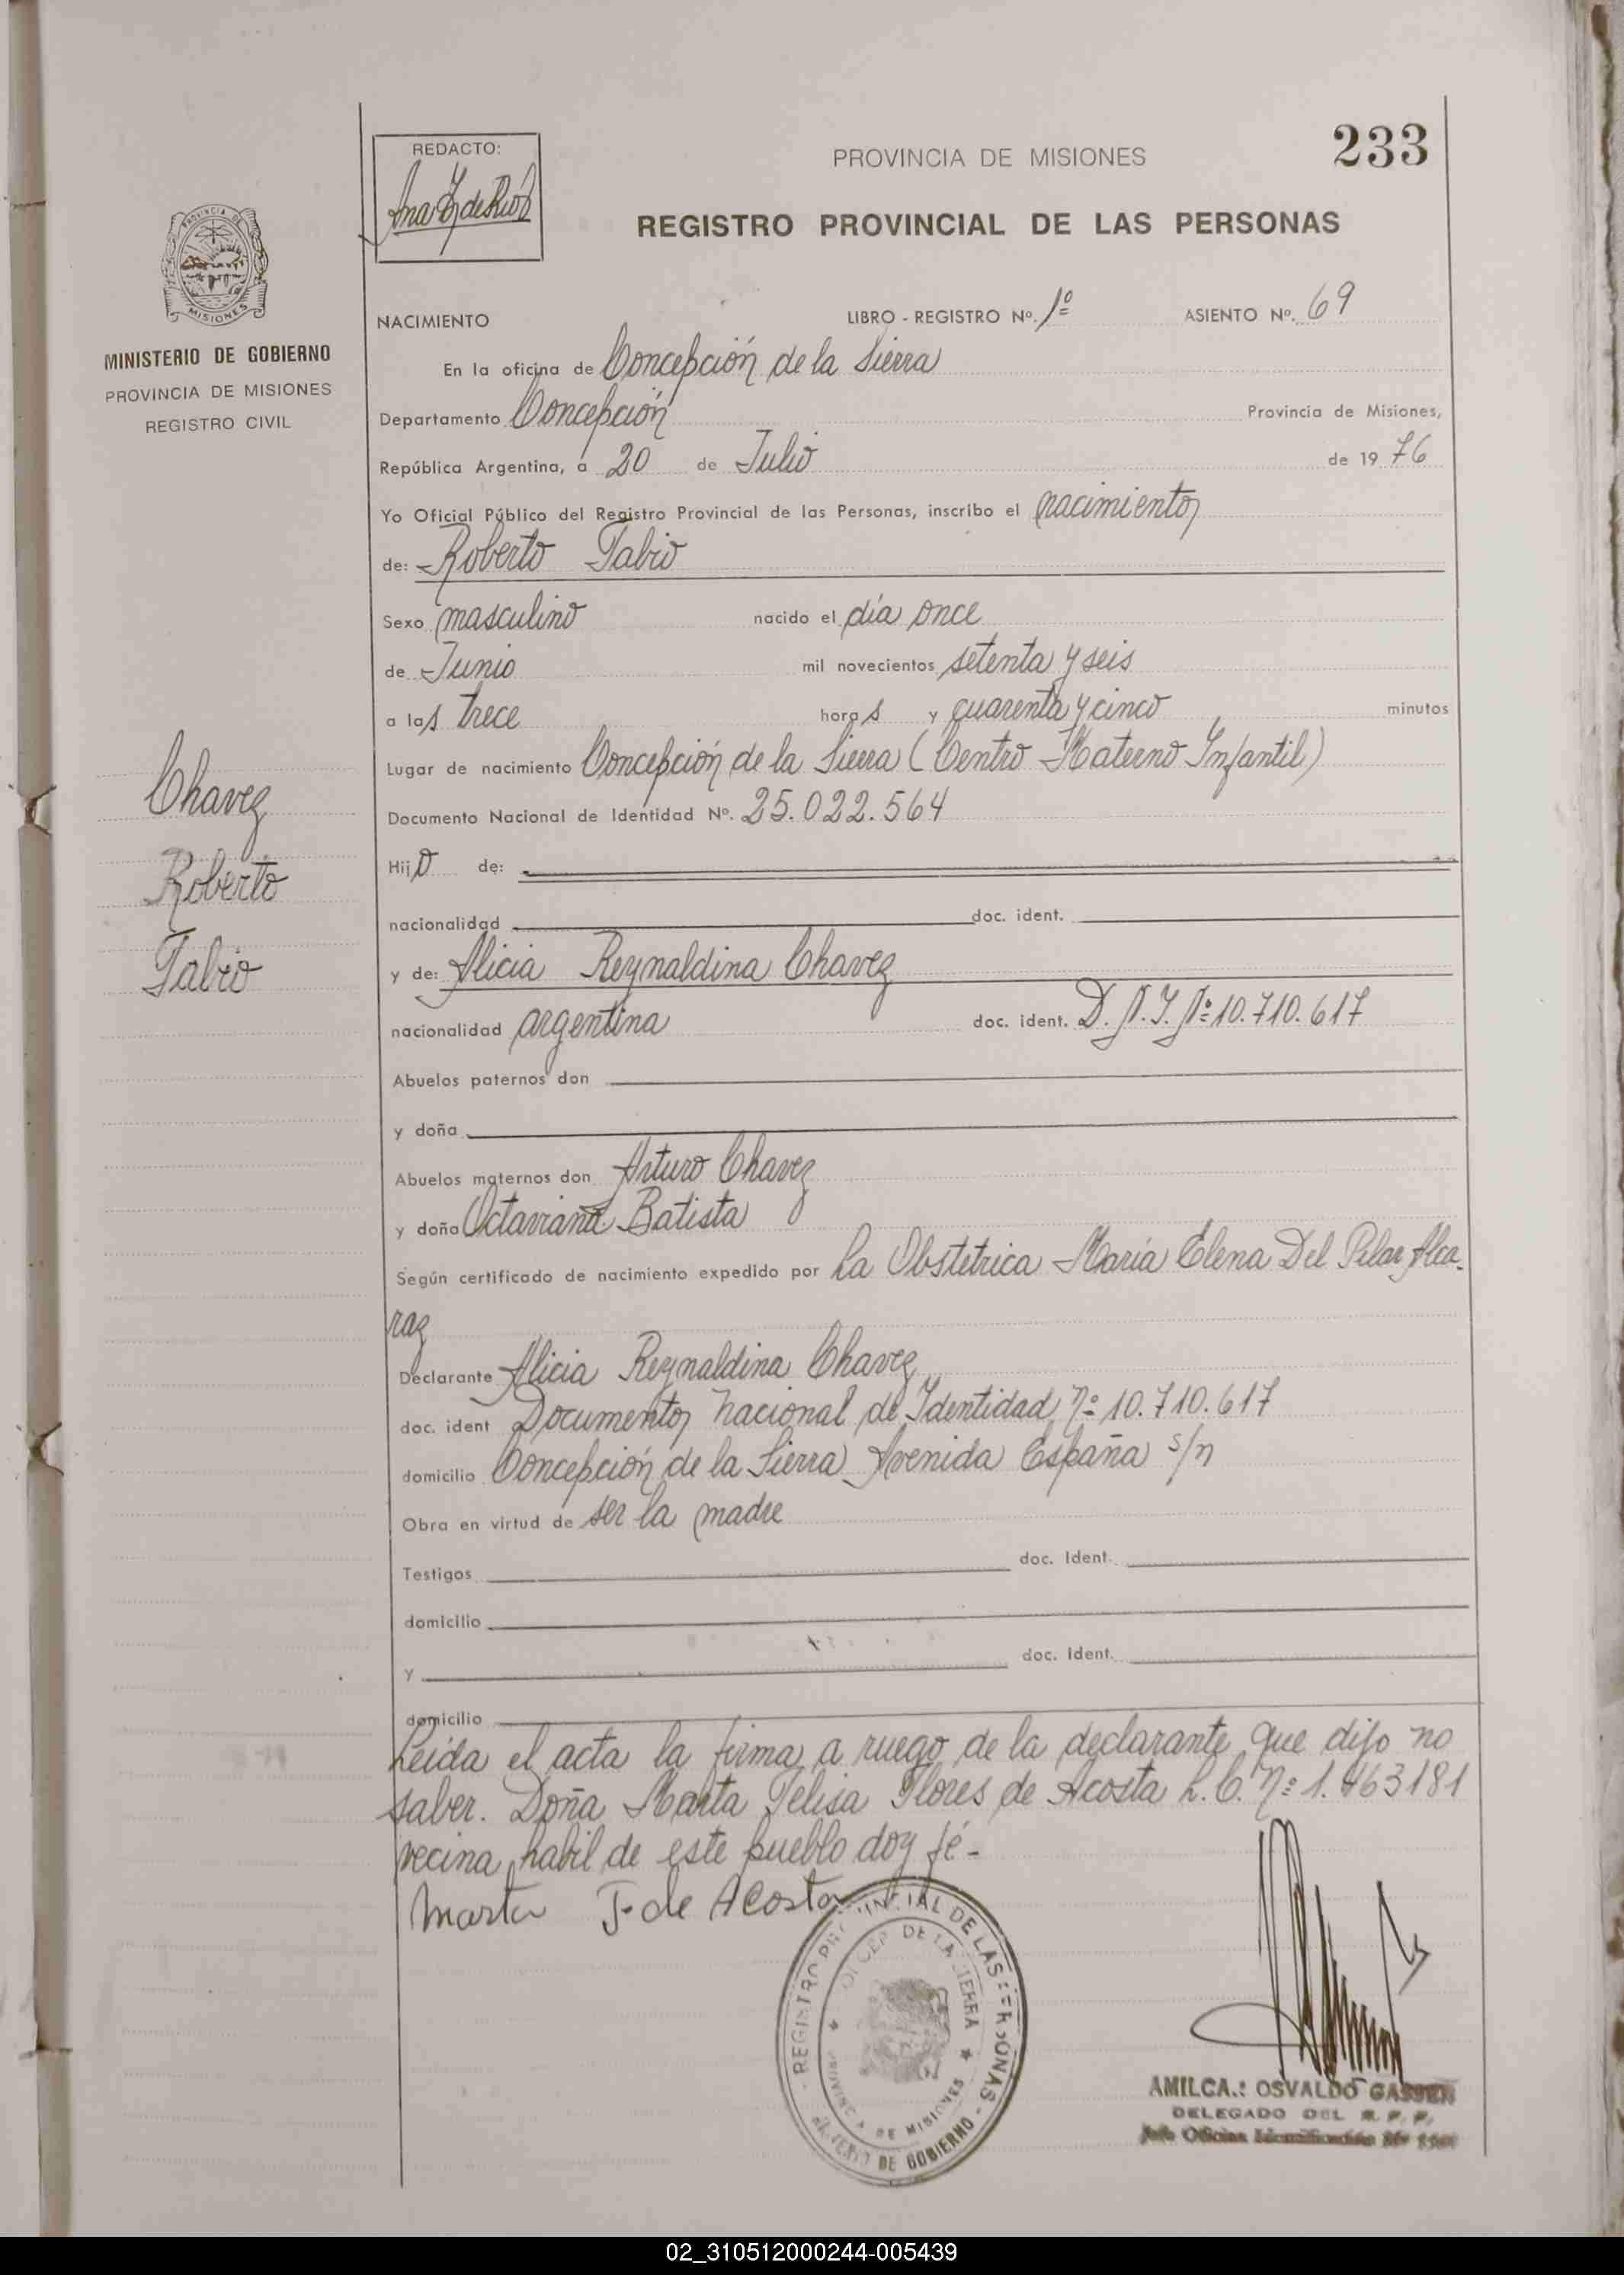 233
REDACTO:
PROVINCIA DE MISIONES
REGISTRO PROVINCIAL DE LAS PERSONAS
MISIONES
MINISTERIO DE GOBIERNO
PROVINCIA DE MISIONES
REGISTRO CIVIL
NACIMIENTO LIBRO - REGISTRO Nº. 1º ASIENTO Nº. 69
En la oficina de Concepción de la Sierra
Departamento Concepción Provincia de Misiones,
República Argentina, a 20 de Julio de 1976
Yo Oficial Público del Registro Provincial de las Personas, inscribo el nacimiento
de: Roberto Fabio
Sexo masculino nacido el día once
de Junio mil novecientos setenta y seis
a las trece horas y cuarenta y cinco minutos
Lugar de nacimiento Concepción de la Sierra (Centro Materno Infantil)
Documento Nacional de Identidad Nº. 25.022.564
Hijo de:
nacionalidad doc. ident.
y de: Alicia Reynaldina Chavez
nacionalidad argentina doc. ident. D.N.I. Nº 10.710.617
Abuelos paternos don
y doña
Abuelos maternos don Arturo Chavez
y doña Octaviana Batista
Según certificado de nacimiento expedido por La Obstetrica María Elena Del Pilar Alca-
raz
Declarante Alicia Reynaldina Chavez
doc. ident Documento Nacional de Identidad Nº 10.710.617
domicilio Concepción de la Sierra Avenida España s/n
Obra en virtud de ser la madre
Testigos doc. Ident.
domicilio
y doc. Ident.
domicilio
Leída el acta la firma a ruego de la declarante que dijo no
saber. Doña Marta Felisa Flores de Acosta L.C. Nº 1.463181
vecina habil de este pueblo doy fé-
Marta F. de Acosta
Chavez
Roberto
Fabio
REGISTRO PROVINCIAL DE LAS PERSONAS
DE LA SIERRA
PROVINCIA DE MISIONES
DE GOBIERNO
OSVALDO
DELEGADO DEL R. P. P.
02_310512000244-005439